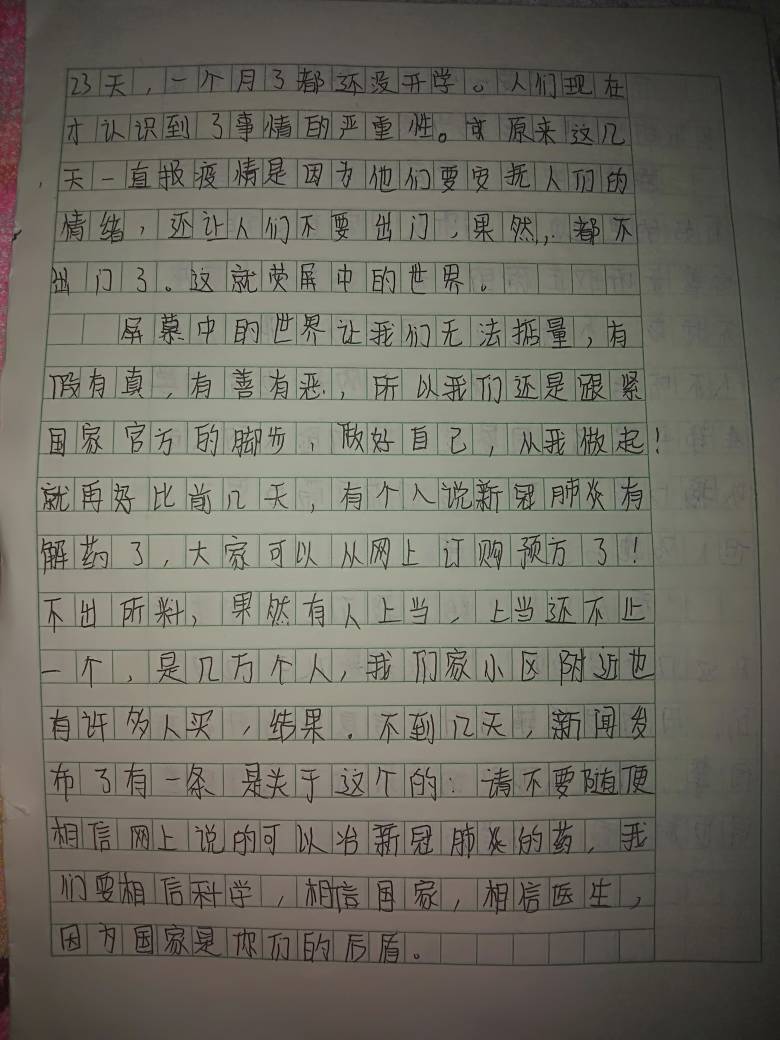 23天，一个月了都还没开学。人们现在
才认识到了事情的严重性。原来这几
天一直报疫情是因为他们要安抚人们的
情绪，还让人们不要出门，果然，都不
出门了。这就荧屏中的世界。
屏幕中的世界让我们无法掂量，有
假有真，有善有恶，所以我们还是跟紧
国家官方的脚步，做好自己，从我做起！
就再好比前几天，有个人说新冠肺炎有
解药了，大家可以从网上订购预方了！
不出所料，果然有人上当，上当还不止
一个，是几万个人，我们家小区附近也
有许多人买，结果。不到几天，新闻发
布了有一条是关于这个的：请不要随便
相信网上说的可以治新冠肺炎的药，我
们要相信科学，相信国家，相信医生，
因为国家是你们的后盾。